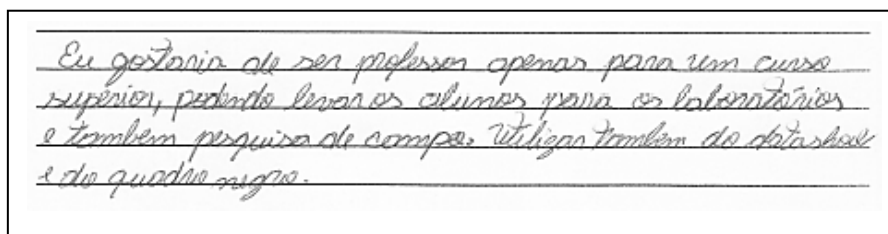 Eu gostaria de ser professor apenas para um curso
superior, podendo levar os alunos para os laboratórios
e tambem pesquisa de campo. Utilizar tambem do datashow
e do quadro negro.